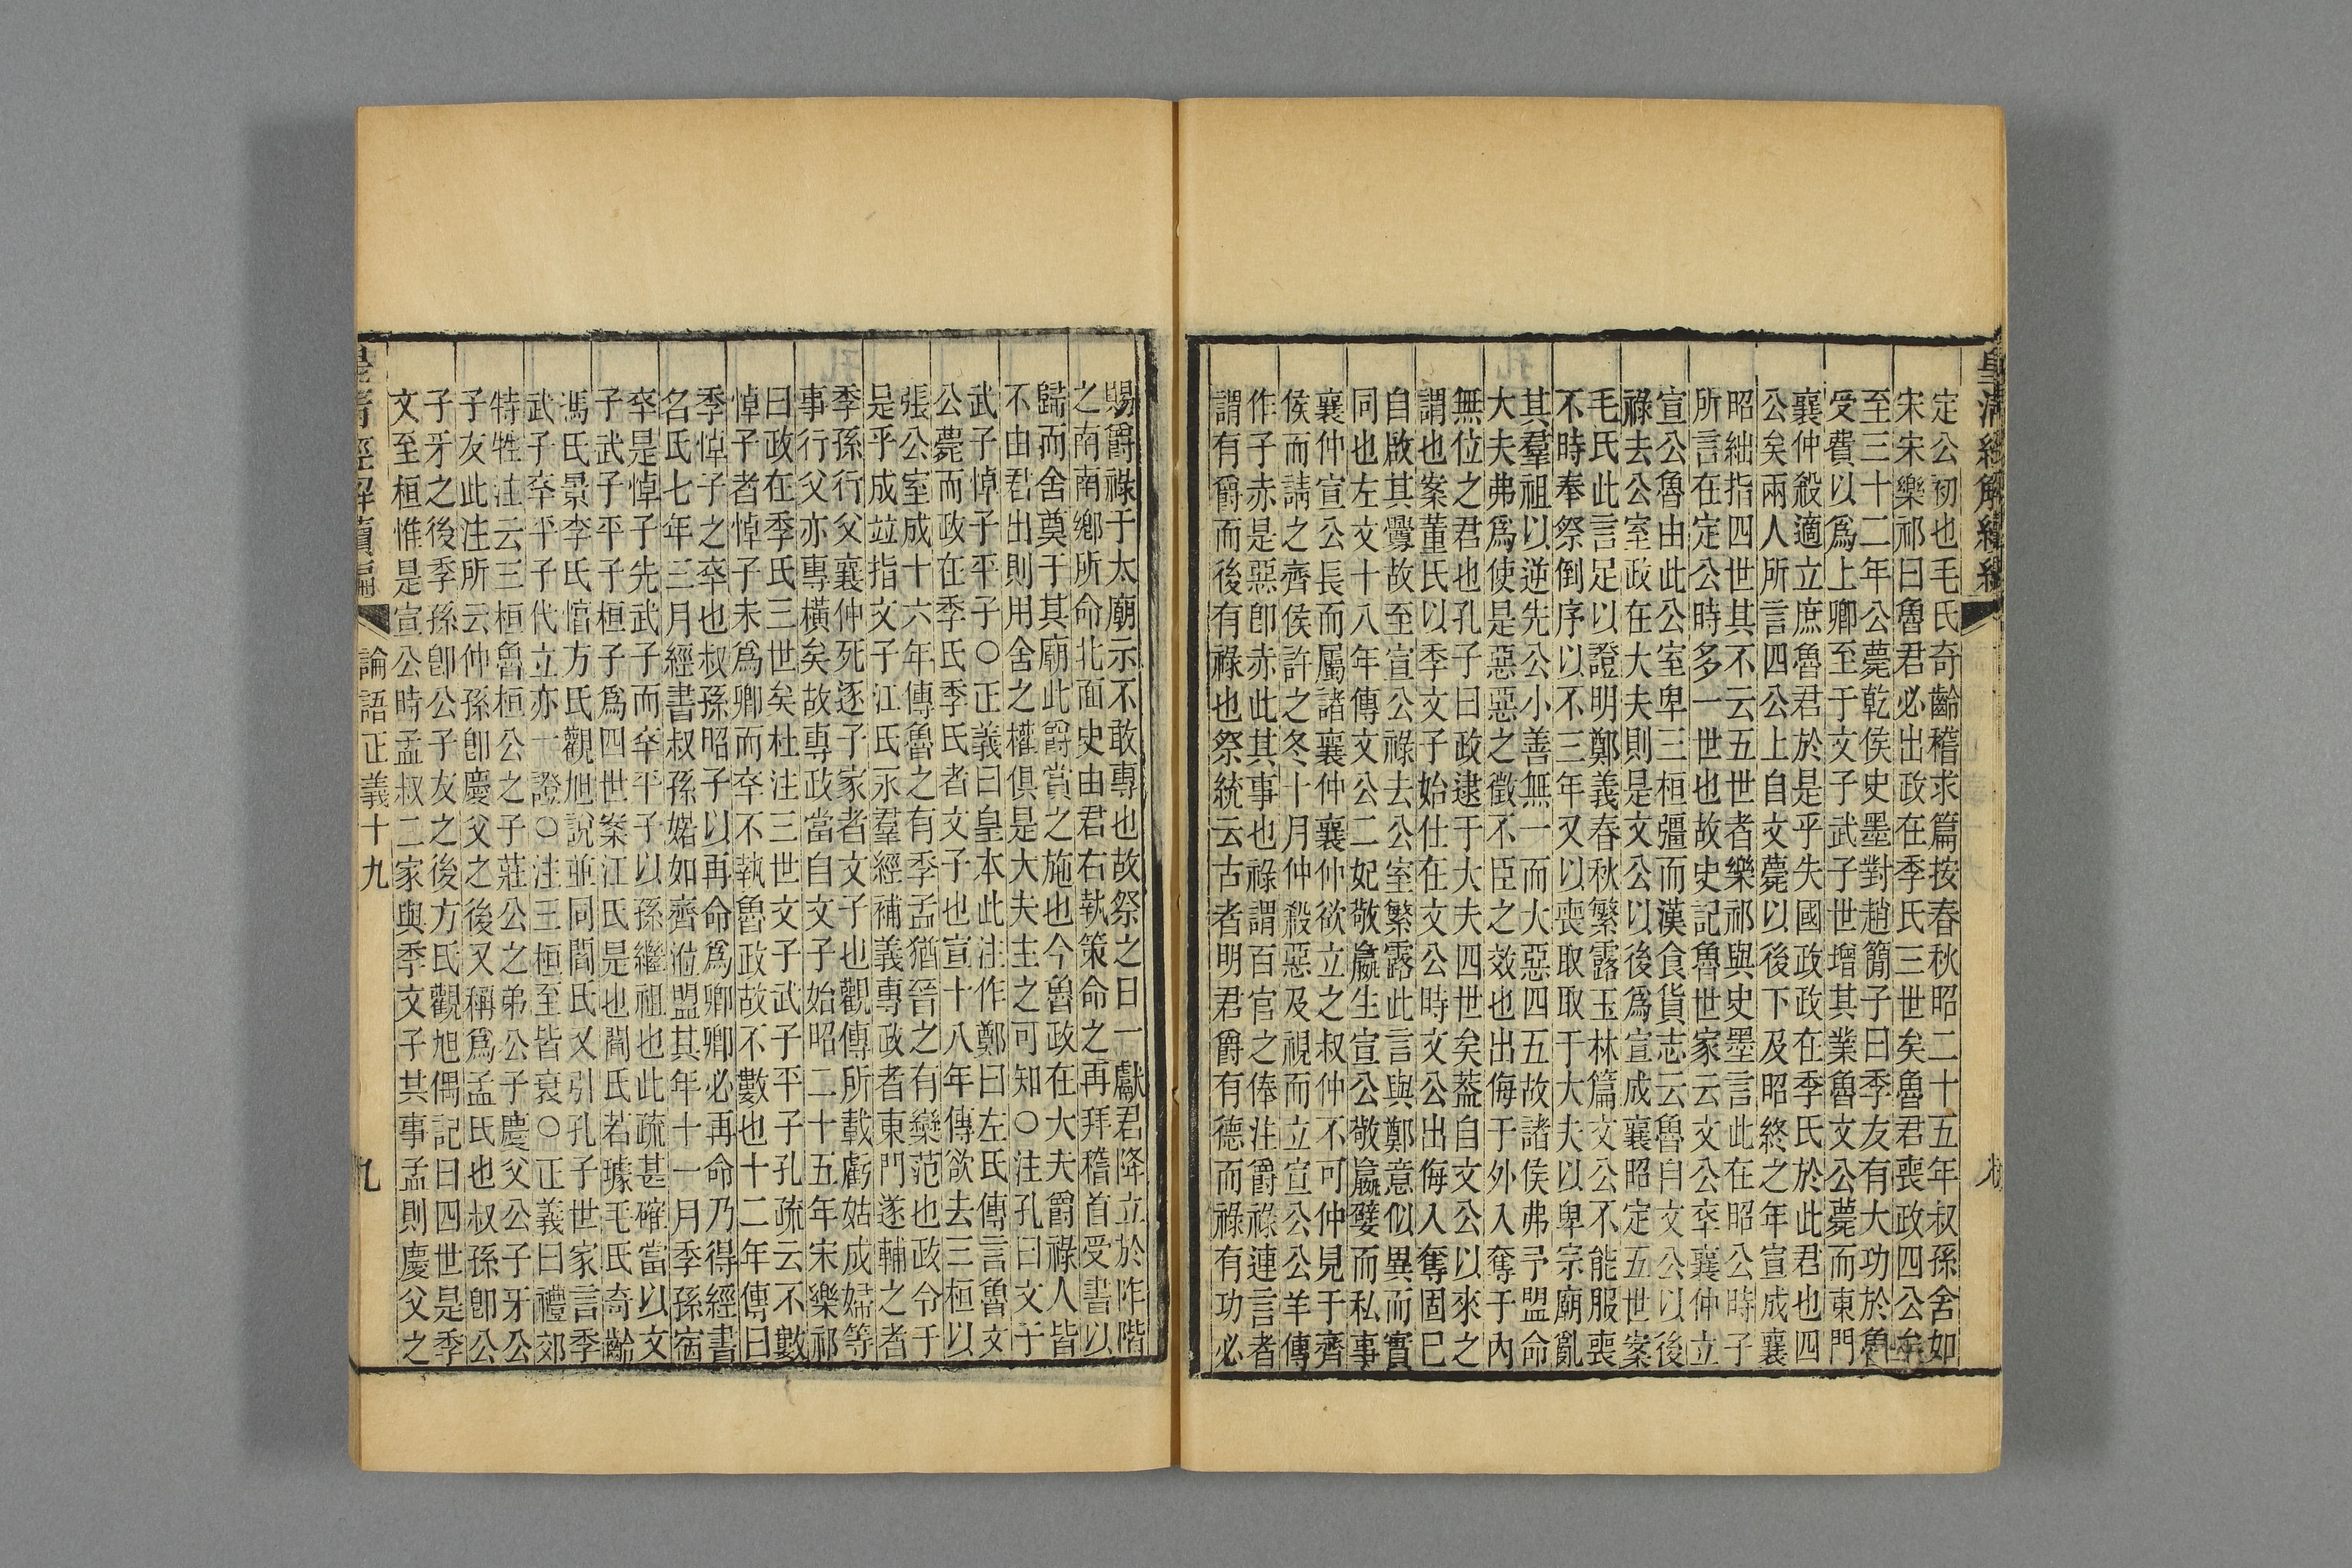 皇清經解續編
定公初也毛氏奇齡稽求篇按春秋昭二十五年叔孫舍如
宋宋樂祁曰魯君必出政在季氏三世矣魯君喪政四公矣
至三十二年公薨乾侯史墨對趙簡子曰季友有大功於魯
受費以爲上卿至于文子武子世增其業魯文公薨而東門
襄仲殺適立庶魯君於是乎失國政政在季氏於此君也四
公矣兩人所言四公上自文薨以後下及昭終之年宣成襄
昭絀指四世其不云五世者樂祁與史墨言此在昭公時子
所言在定公時多一世也故史記魯世家云文公卒襄仲立
宣公魯由此公室卑三桓彊而漢食貨志云魯自文公以後
祿去公室政在大夫則是文公以後爲宣成襄昭定五世案
毛氏此言足以證明鄭義春秋繁露玉林篇文公不能服喪
不時奉祭倒序以不三年又以喪取取于大夫以卑宗廟亂
其羣祖以逆先公小善無一而大惡四五故諸侯弗予盟命
大夫弗爲使是惡惡之徵不臣之效也出侮于外入奪于內
無位之君也孔子曰政逮于大夫四世矣葢自文公以來之
謂也案董氏以季文子始仕在文公時文公出侮入奪固已
自啟其釁故至宣公祿去公室繁露此言與鄭意似異而實
同也左文十八年傳文公二妃敬嬴生宣公敬嬴嬖而私事
襄仲宣公長而屬諸襄仲襄仲欲立之叔仲不可仲見于齊
侯而請之齊侯許之冬十月仲殺惡及視而立宣公公羊傳
作子赤是惡卽赤此其事也祿謂百官之俸注爵祿連言者
謂有爵而後有祿也祭統云古者明君爵有德而祿有功必
賜爵祿于太廟示不敢專也故祭之日一獻君降立於阼階
之南南鄉所命北面史由君右執策命之再拜稽首受書以
歸而舍奠于其廟此爵賞之施也今魯政在大夫爵祿人皆
不由君出則用舍之權俱是大夫主之可知○注孔曰文子
武子悼子平子○正義曰皇本此注作鄭曰左氏傳言魯文
公薨而政在季氏季氏者文子也宣十八年傳欲去三桓以
張公室成十六年傳魯之有季孟猶晉之有欒范也政令于
是乎成竝指文子江氏永羣經補義專政者東門遂輔之者
季孫行父襄仲死逐子家者文子也觀傳所載虧姑成婦等
事行父亦專橫矣故專政當自文子始昭二十五年宋樂祁
曰政在季氏三世矣杜注三世文子武子平子孔疏云不數
悼子者悼子未爲卿而卒不執魯政故不數也十二年傳曰
季悼子之卒也叔孫昭子以再命爲卿卿必再命乃得經書
名氏七年三月經書叔孫婼如齊涖盟其年十一月季孫宿
卒是悼子先武子而卒平子以孫繼祖也此疏甚確當以文
子武子平子桓子爲四世案江氏是也閻氏若璩毛氏奇齡
馮氏景李氏惇方氏觀旭說並同閻氏又引孔子世家言季
武子卒平子代立亦一證○注三桓至皆衰○正義曰禮郊
特牲注云三桓魯桓公之子莊公之弟公子慶父公子牙公
子友此注所云仲孫卽慶父之後又稱爲孟氏也叔孫卽公
子牙之後季孫卽公子友之後方氏觀旭偶記曰四世是季
文至桓惟是宣公時孟叔二家與季文子其事孟則慶父之
皇清經解續編 論語正義十九 九